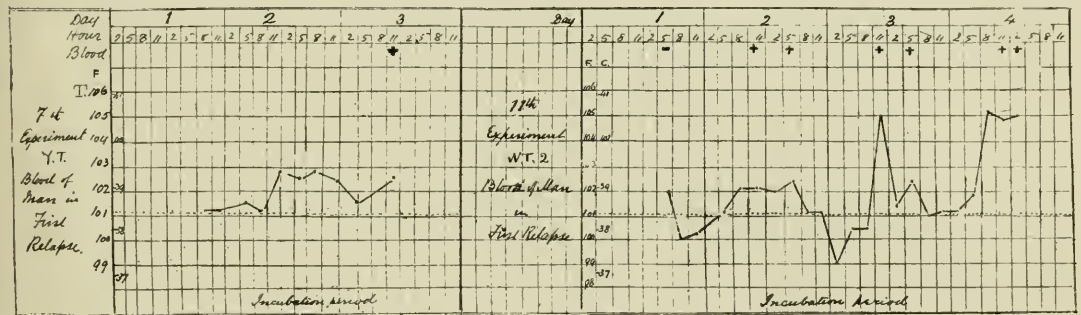 Day 1 2 3
Hour 2 5 8 11 2 5 8 11 2 5 8 11 2 5 8 11
Blood +
F
T. 106 41
105
104 40
103
102 39
101
100 38
99 37
7th
Experiment
Y.T.
Blood of
Man in
First
Relapse.
Incubation period
Day 1 2 3 4
2 5 8 11 2 5 8 11 2 5 8 11 2 5 8 11
- + + + + + +
F. C.
106 41
105
104 40
102 39
101
100 38
99 37
98
11th
Experiment
W.T. 2
Blood of Man
in
First Relapse
Incubation period